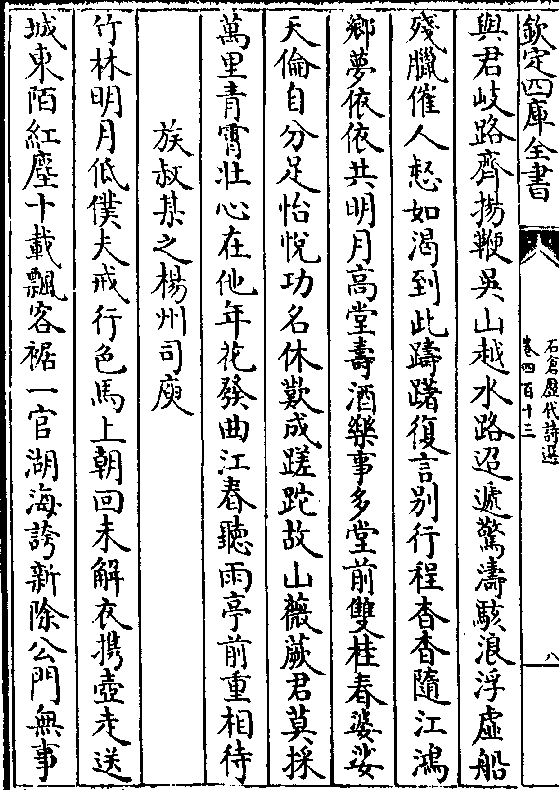 欽定四庫全書
石倉歷代詩選
卷四百十三
八
與君岐路齊揚鞭吳山越水路迢遞驚濤駭浪浮虛船
殘臘催人愁如渴到此躊躇復言別行程杳杳隨江鴻
鄉夢依依共明月高堂壽酒樂事多堂前雙桂春婆娑
天倫自分足怡悅功名休歎成蹉跎故山薇蕨君莫採
萬里青霄壯心在他年花發曲江春聽雨亭前重相待
族叔某之楊州司庾
竹林明月低僕夫戒行色馬上朝回未解衣携壺走送
城東陌紅塵十載飄客裾一官湖海誇新除公門無事